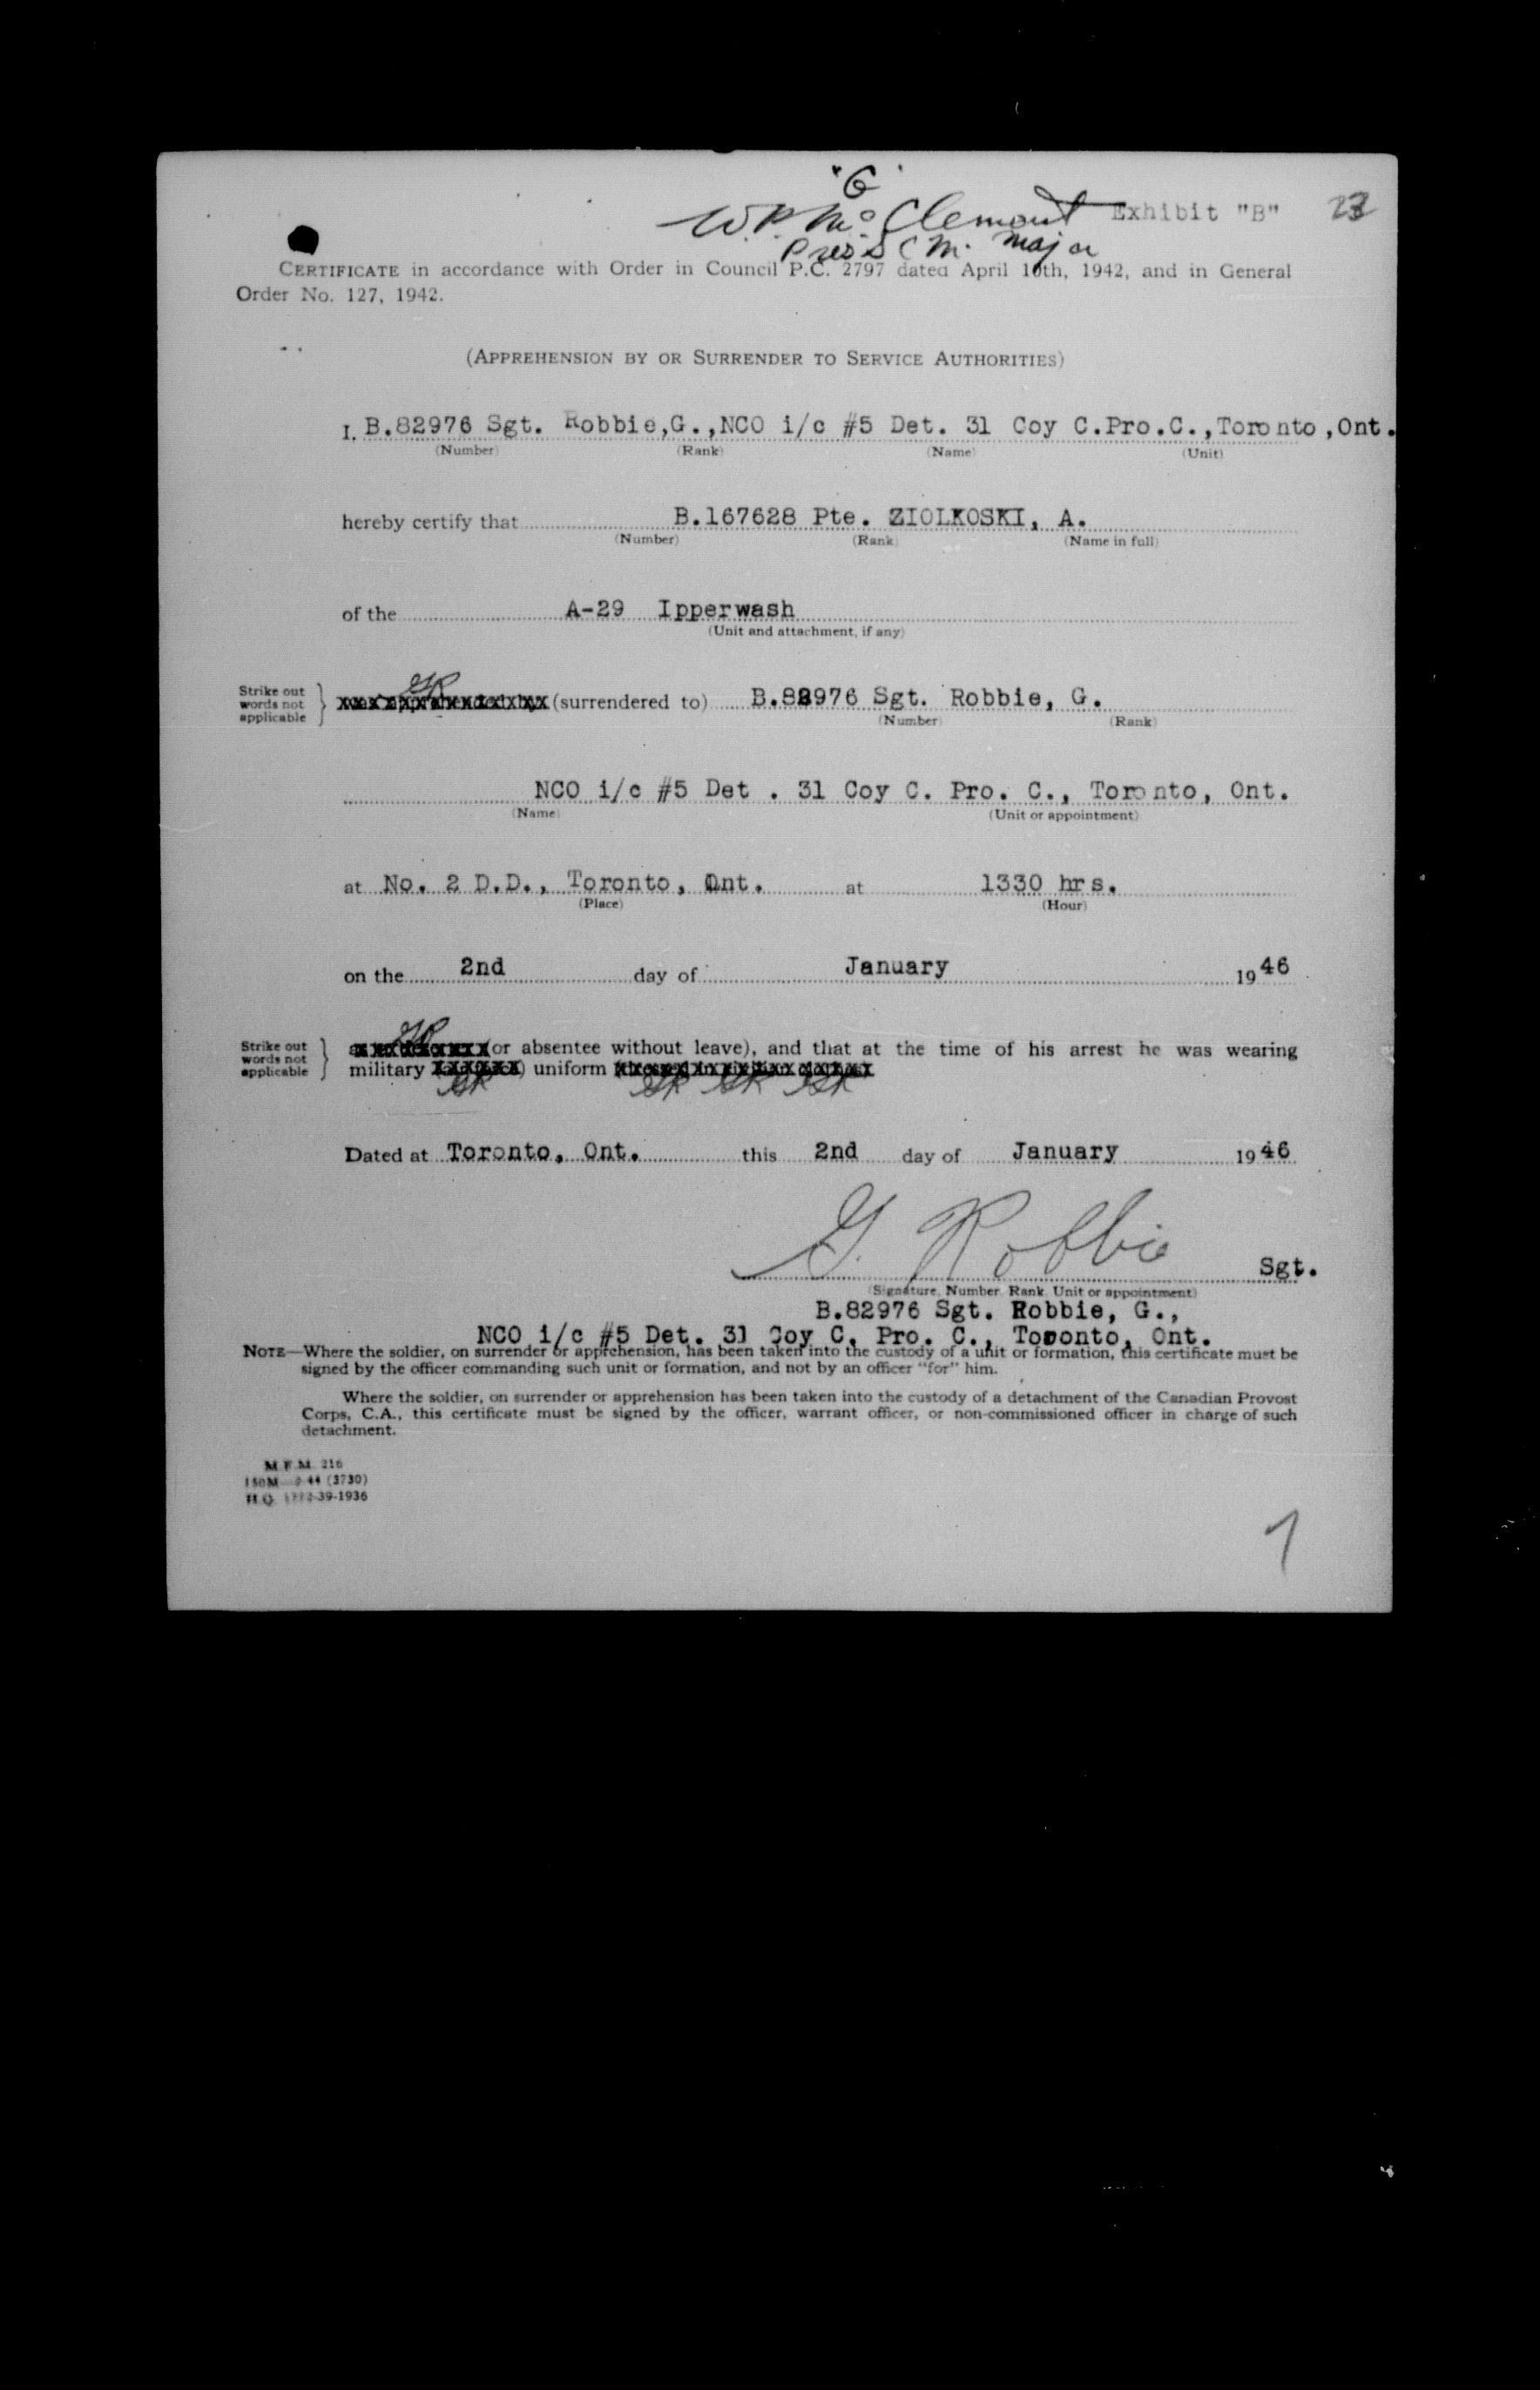 "G"
W.P. McClemont Exhibit "B" 23
Pres. S C M. Major
CERTIFICATE in accordance with Order in Council P.C. 2797 dated April 10th, 1942, and in General
Order No. 127, 1942.
(APPREHENSION BY OR SURRENDER TO SERVICE AUTHORITIES)
I, B.82976 Sgt. Robbie,G.,NCO i/c #5 Det. 31 Coy C.Pro.C.,Toronto,Ont.
(Number) (Rank) (Name) (Unit)
hereby certify that B.167628 Pte. ZIOLKOSKI, A.
(Number) (Rank) (Name in full)
of the A-29 Ipperwash
(Unit and attachment, if any)
Strike out
words not
applicable
GR
(surrendered to) B.82976 Sgt. Robbie, G.
(Number) (Rank)
NCO i/c #5 Det . 31 Coy C. Pro. C., Toronto, Ont.
(Name) (Unit or appointment)
at No. 2 D.D., Toronto, Ont. at 1330 hrs.
(Place) (Hour)
on the 2nd day of January 1946
Strike out
words not
applicable
GR
(or absentee without leave), and that at the time of his arrest he was wearing
military uniform
GR GR GR GR
Dated at Toronto, Ont. this 2nd day of January 1946
G. Robbie Sgt.
(Signature, Number, Rank, Unit or appointment)
B.82976 Sgt. Robbie, G.,
NCO i/c #5 Det. 31 Coy C. Pro. C., Toronto, Ont.
NOTE—Where the soldier, on surrender or apprehension, has been taken into the custody of a unit or formation, this certificate must be
signed by the officer commanding such unit or formation, and not by an officer "for" him.
Where the soldier, on surrender or apprehension has been taken into the custody of a detachment of the Canadian Provost
Corps, C.A., this certificate must be signed by the officer, warrant officer, or non-commissioned officer in charge of such
detachment.
M.F.M. 216
150M 44 (3730)
H.Q. 39-1936
7